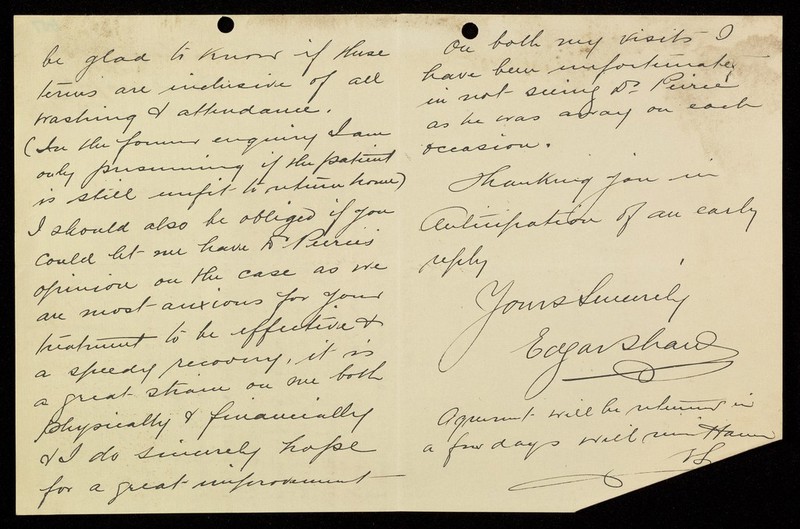 be glad to know if these
terms are inclusive of all
washing & attendance.
(In the former enquiry I am
only presuming if the patient
is still unfit to return home)
I should also be obliged if you
could let me have Dr Peirie's
opinion on the case as we
are most anxious for your
treatment to be effective &
a speedy recovery, it is
a great strain on me both
physically & financially
& I do sincerely hope
for a great improvement
On both my visits I
have been unfortunate,
in not seeing Dr Peirie
as he was away on each
occasion.
Thanking you in
Anticipation of an early
reply
Yours Sincerely
Edgar Shaw
Agreement will be returned in
a few days